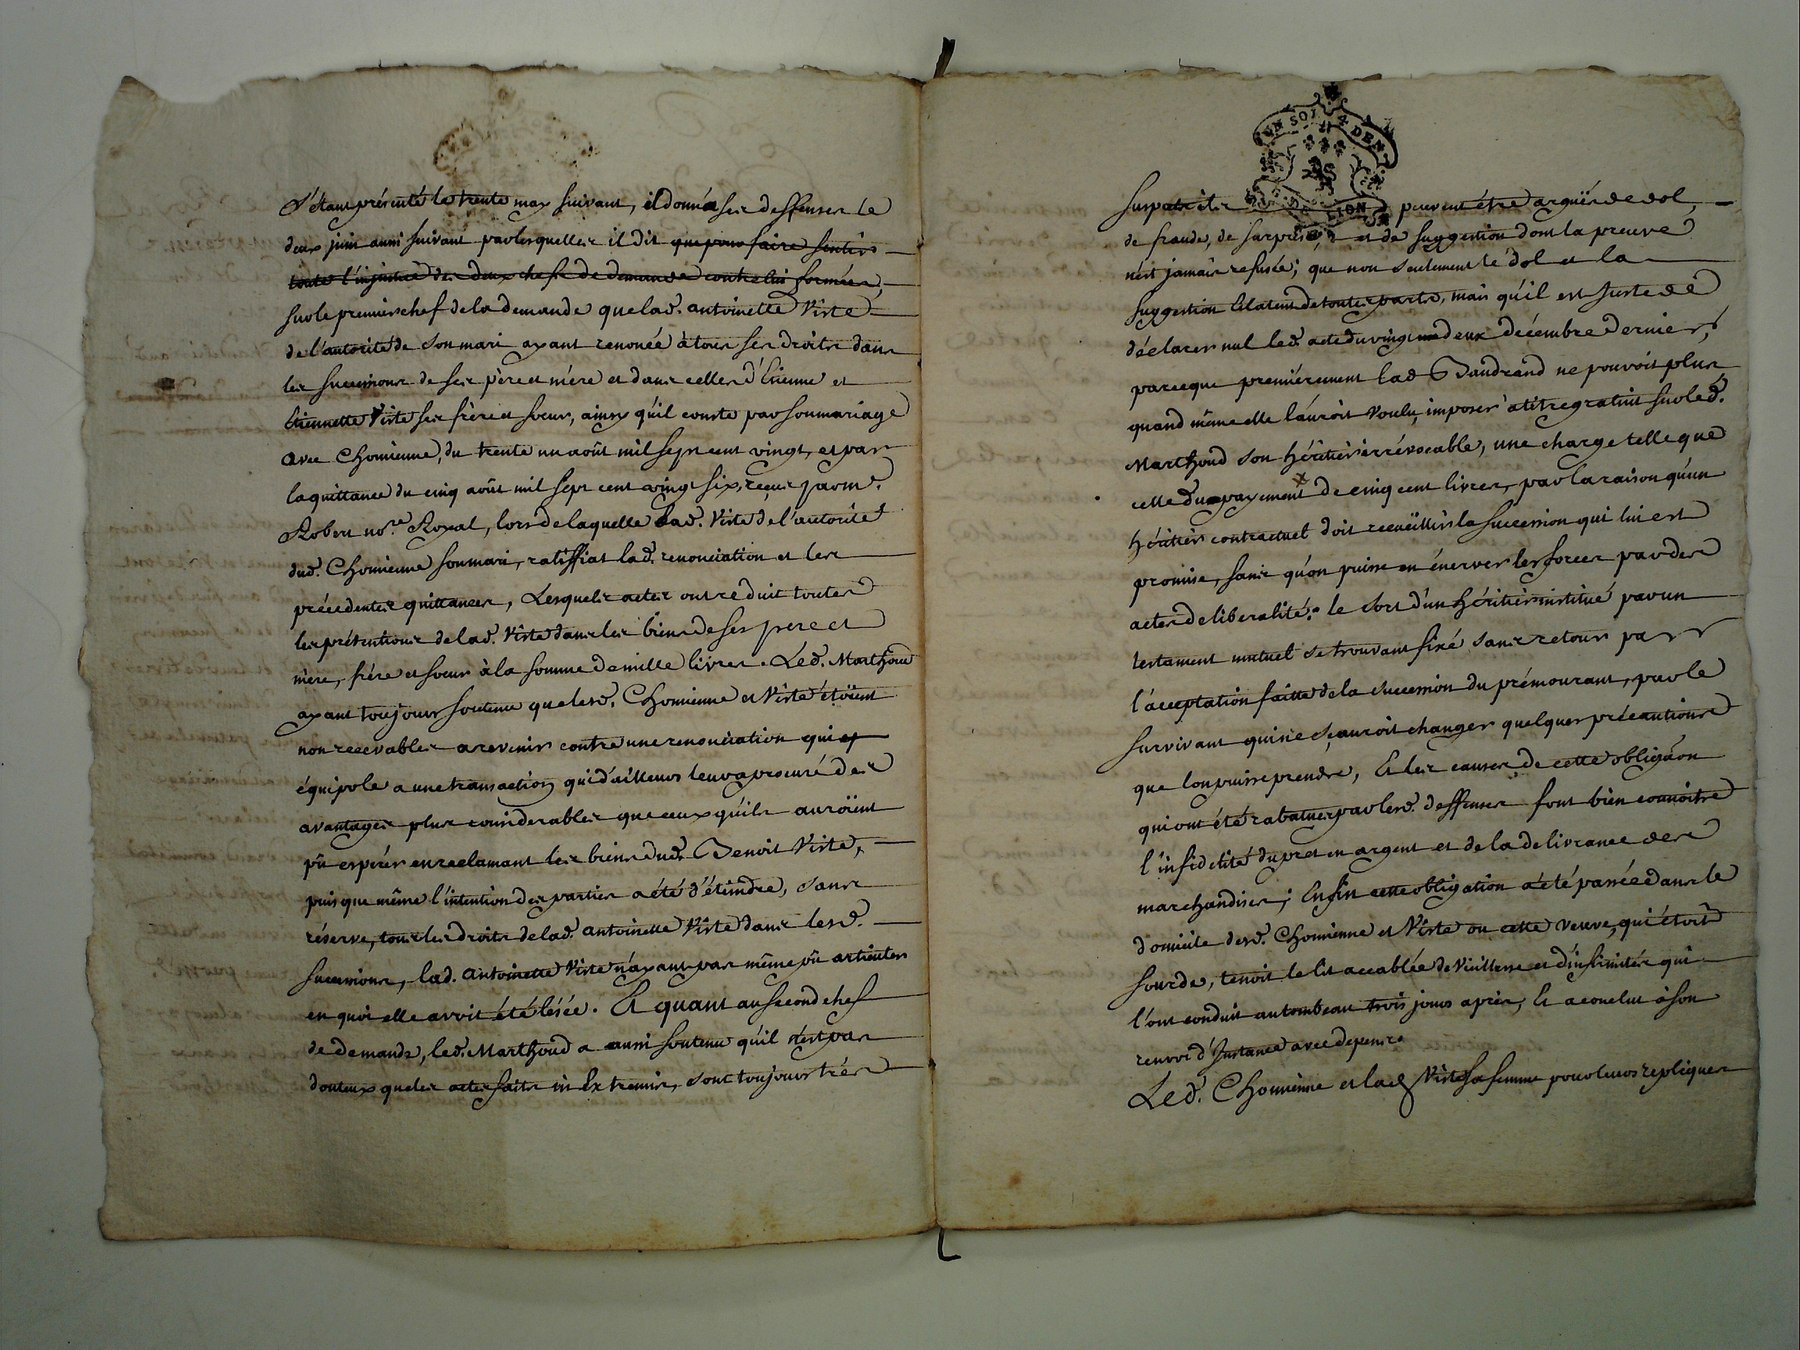 S'étant présenté le trente may suivant, il donna ses deffenses le
deux juin aussi suivant par lesquelles il dit que pour faire sentir
toute l'injustice des deux chefs de demande contre lui formés,
sur le premier chef de la demande que lad. antoinette Viste
de l'autorité de son mari ayant renoncé à tous ses droits dans
les successions de ses père et mère et dans celles d'Etienne et
Etiennette Viste ses frère et soeur, ainsy qu'il conste par son mariage
avec Chomienne, du trente un août mil sept cent vingt, et par
la quittance du cinq août mil sept cent vingt six, reçue par me.
Robert no.re Royal, lors de laquelle Lad. Viste de l'autorité
dud. Chomienne son mari, ratiffiat lad. renonciation et les
précédentes quittances, Lesquels actes ont réduit toutes
les prétentions de lad. Viste dans les biens de ses pere et
mère, frére et soeur à la somme de mille livres. Led. Marthoud
ayant toujours soutenu que lesd. Chomienne et Viste étoient
non recevables a revenir contre une renonciation qui
équipole a une transaction qui d'ailleurs leur a procuré des
avantages plus considerables que ceux qu'ils auroient
pû espérer en reclamant les biens dud. Benoit Viste,
puis que même l'intention des parties a été d'éteindre, sans
réserve, tous les droits de lad. antoinette Viste dans lesd.
successions, lad. antoinette Viste n'ayant pas même pû articuler
en quoi elle avoit été lésée. Et quant au second chef
de demande, led. Marthoud a aussi soutenu qu'il n'est pas
douteux que les actes faits in Extremis, sont toujours très
UN SOL 4 DEN.
DE LION
suspects et peuvent être arguës de dol,
de fraude, de surprise, et de suggestion dont la preuve
n'est jamais refusée; que non seulement le dol et la
suggestion Eclatent de toutes parts, mais qu'il est juste de
déclarer nul led. acte du vingt deux décembre dernier,
parceque premièrement lad Baudrand ne pouvoit plus
quand même elle l'auroit voulu, imposer a titre gratuit sur led.
Marthoud son héritier irrévocable, une charge telle que
celle du payement de cinq cent livres, par la raison qu'un
héritier contractuel doit recueillir la succession qui lui est
promise, sans qu'on puisse en énerver les forces par des
actes de liberalité: le sort d'un héritier institué par un
testament mutuel se trouvant fixé sans retour par
l'acceptation faitte de la succession du prémourant, par le
survivant qui ne sçauroit changer quelques précautions
que lon puisse prendre, Et les causes de cette obligãon
qui ont été rabatues par lesd. deffenses font bien connoitre
l'infidelité du pret en argent et de la delivrance des
marchandises; Enfin cette obligation a été passée dans le
domicile desd. Chomienne et Viste ou cette veuve, qui étoit
sourde, tenoit le lit accablée de vieillesse et d'infirmités qui
l'ont conduit au tombeau trois jours après, Et a conclut à son
renvoi d'Instance avec depens.
Led. Chomienne et lad. Viste sa femme pour leurs repliques